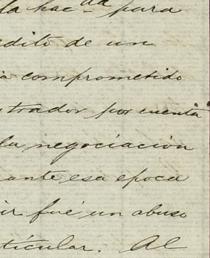 la hac.da para
édito de un
a comprometido
trador por cuenta
la negociación
ante esa epoca
ir fué un abuso
ticular. Al